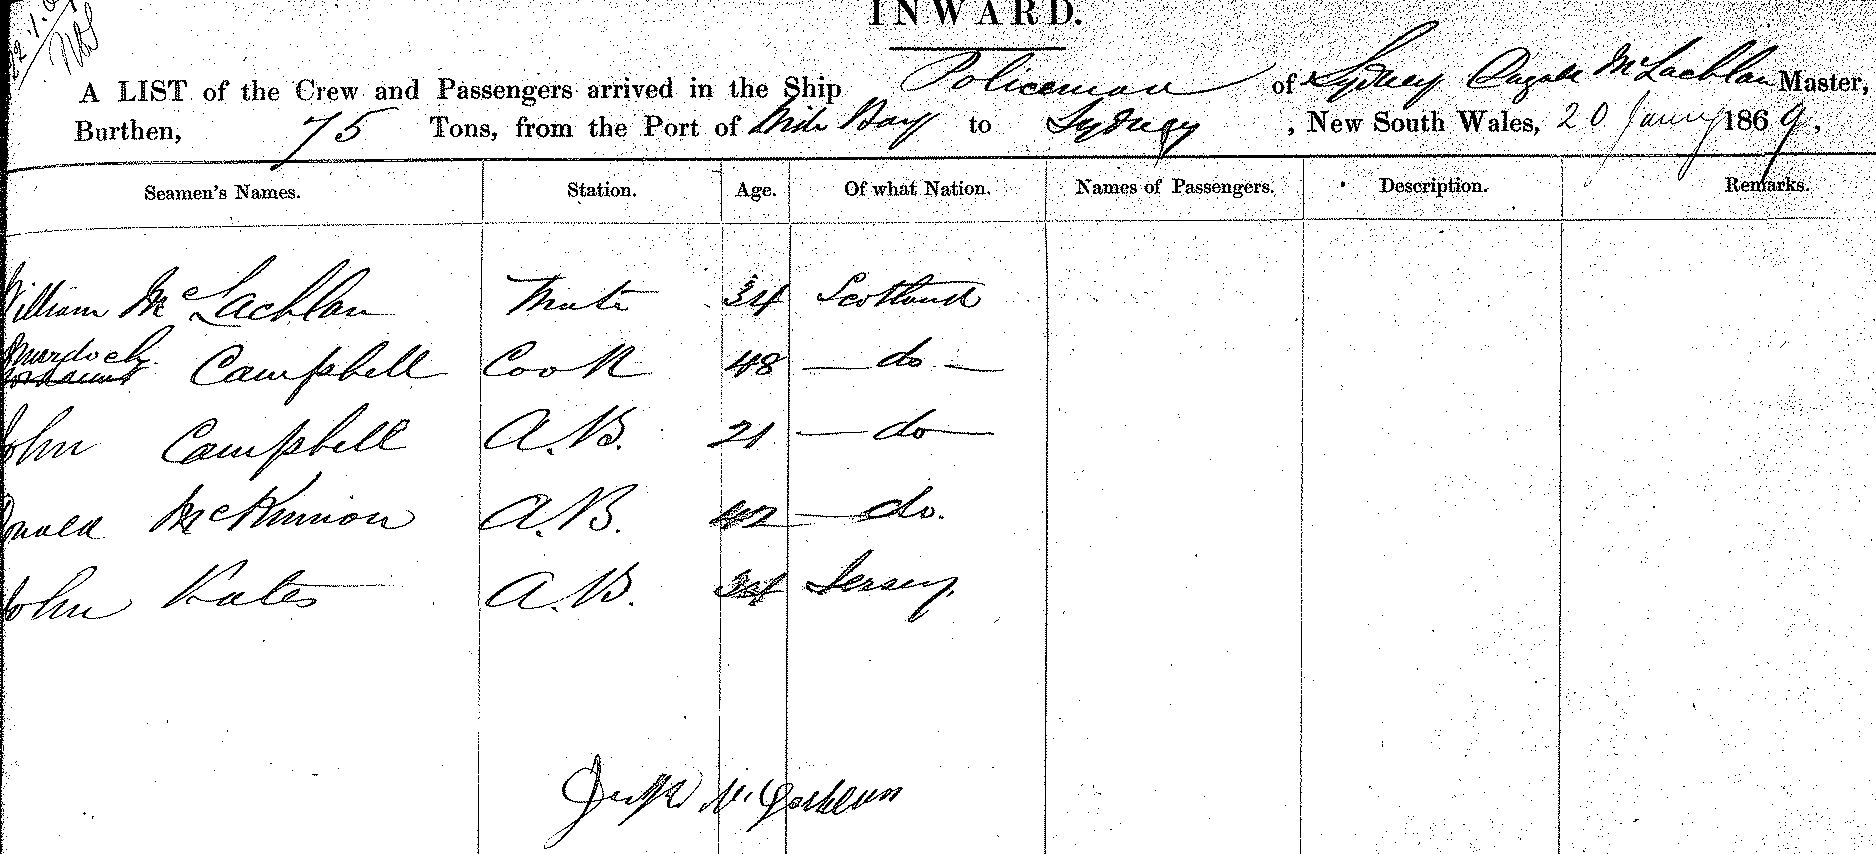 INWARD.
A LIST of the Crew and Passengers arrived in the Ship Policeman of Sydney McLachlan Master,
Burthen, 75 Tons, from the Port of Bay to Sydney, New South Wales, 20 Jany 1869.
Seamen's Names. Station. Age. Of what Nation. Names of Passengers. Description. Remarks.
William McLachlan Mate 34 Scotland
Murdoch Campbell Cook 48 — do —
John Campbell A.B. 21 — do —
Donald McKinnion A.B. 42 — do.
John Kates A.B. 34 Jersey.